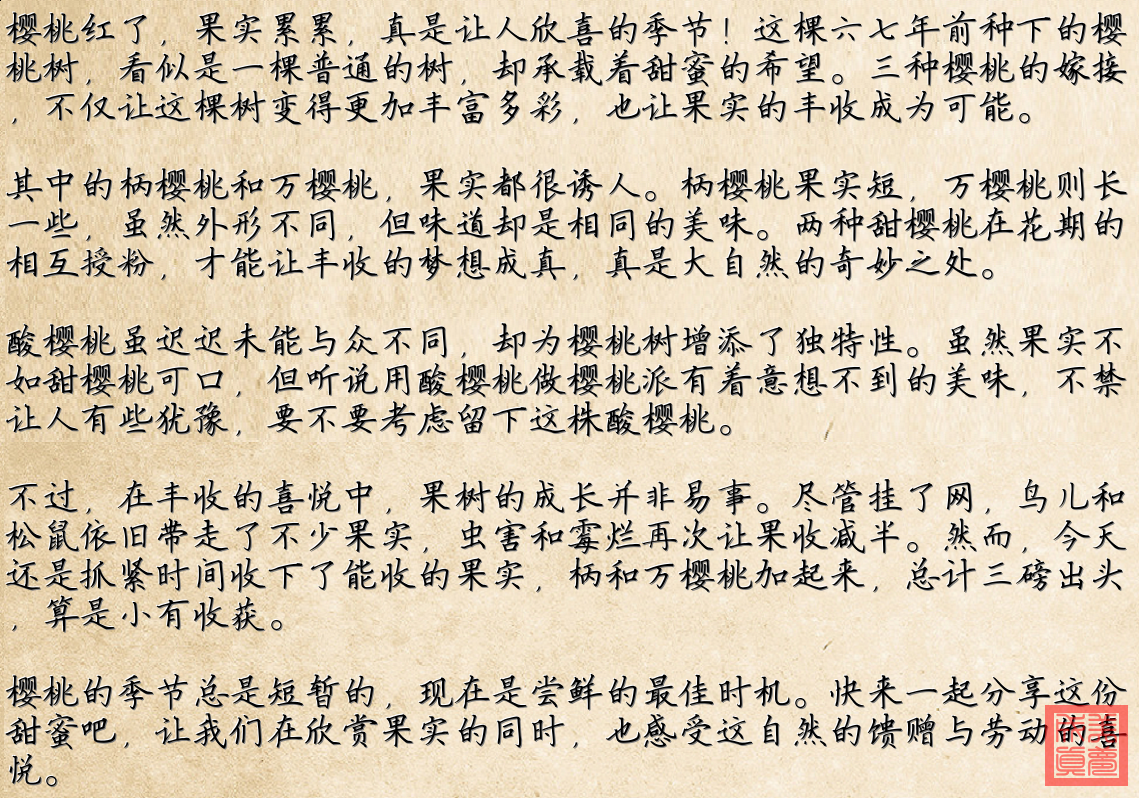 樱桃红了，果实累累，真是让人欣喜的季节！这棵六七年前种下的樱
桃树，看似是一棵普通的树，却承载着甜蜜的希望。三种樱桃的嫁接
，不仅让这棵树变得更加丰富多彩，也让果实的丰收成为可能。
其中的柄樱桃和万樱桃，果实都很诱人。柄樱桃果实短，万樱桃则长
一些，虽然外形不同，但味道却是相同的美味。两种甜樱桃在花期的
相互授粉，才能让丰收的梦想成真，真是大自然的奇妙之处。
酸樱桃虽迟迟未能与众不同，却为樱桃树增添了独特性。虽然果实不
如甜樱桃可口，但听说用酸樱桃做樱桃派有着意想不到的美味，不禁
让人有些犹豫，要不要考虑留下这株酸樱桃。
不过，在丰收的喜悦中，果树的成长并非易事。尽管挂了网，鸟儿和
松鼠依旧带走了不少果实，虫害和霉烂再次让果收减半。然而，今天
还是抓紧时间收下了能收的果实，柄和万樱桃加起来，总计三磅出头
，算是小有收获。
樱桃的季节总是短暂的，现在是尝鲜的最佳时机。快来一起分享这份
甜蜜吧，让我们在欣赏果实的同时，也感受这自然的馈赠与劳动的喜
悦。